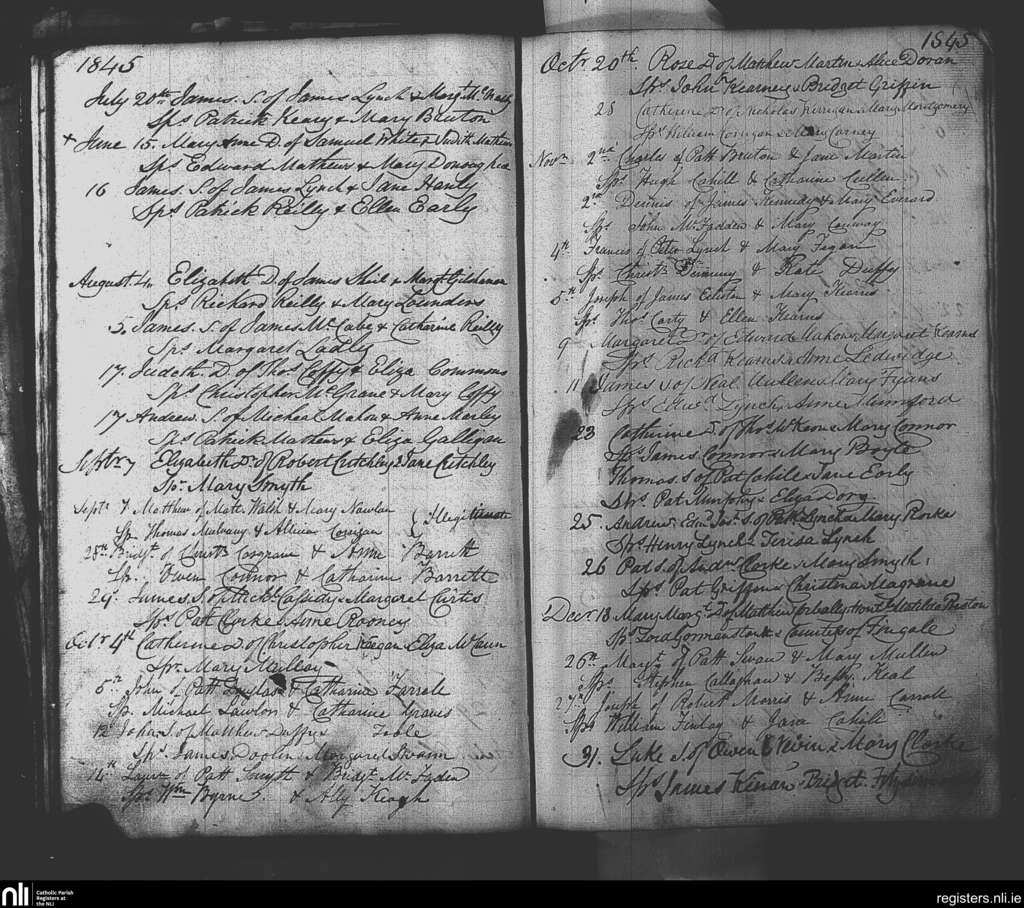 1845
July 20th James. S. of James Lynch & Margt McNally
Sps Patrick Keary & Mary Bruton
+ June 15. Mary Anne D. of Samuel White & Judith Mathews
Sps Edward Mathews & Mary Donoughoe
16 James. S. of James Lynch & Jane Hanty
Sps Patrick Reilly & Ellen Early
August 4. Elizabeth D. of James Shiel & Margt
Sps Richard Reilly & Mary Saunders
5. James. S. of James McCabe & Catharine Reilly
Sps Margaret
17. Judeth D. of Thos Coffy & Eliza Commons
Sps Christopher McGrane & Mary Coffy
17 Andrew. S. of Micheal Mahon & Anne Marley
Sps Patrick Mathews & Eliza Galligan
Septr 7 Elizabeth D. of Robert Critchley & Jane Critchley
Spr Mary Smyth
Septr 7 Matthew of Matt Walsh & Mary Nowlan
Sps Thomas Mulvany & Corrigan Illegitimate
28th Bridgt of Christr Cosgrave & Anne Barrett
Sps Owen Connor & Catharine Barrett
29. James S. of Michl Cassidy & Margaret Curtis
Sps Pat Clorke & Anne Rooney
Octr 4th Catherine D. of Christopher Keegan & Eliza McCann
Spr Mary Mullay
5th John of Patt Douglas & Catharine Farrell
Sp Michael Lawlor & Catharine Graves
12 John S. of Matthew Duffy &
Sps James Doolin & Margaret
14th Laurce of Patt Smyth & Bridgt McFaden
Sps Wm Byrne & Ally Keogh
1845
Octr 20th. Rose D. of Mathew Martin & Alice Doran
Sps John Kearney & Bridget Griffin
28 Catherine D. of Nicholas Kerrigan & Mary Montgomery
Sps William Corrigan & Mary Carney
Novr 2nd Charles of Patt Bruton & Jane Martin
Sps Hugh Cahill & Catharine Cullen
2nd Dennis of James Kennedy & Mary Everard
Sps John McFadden & Mary Conway
4th Francis of Peter Lynch & Mary Fagan
Sps Christr & Kate Duffy
5th Joseph of James & Mary Kearns
Sps Thos Carty & Ellen Kearns
9 Margaret D. of Edward Mahon & Margaret Kearns
Sps Richd Kearns & Anne Ledwidge
11 James S. of Neal Mullen & Mary Fyans
Sps Edwd Lynch & Anne Mumford
23 Catherine D. of Thos McKeon & Mary Connor
Sps James Connor & Mary Boyle
Thomas. S. of Pat Cahile & Jane Early
Sps Pat Murphy & Eliza
25. Andrew, Edwd Jos. S. of Patk Lynch & Mary Rorke
Sps Henry Lynch & Terisa Lynch
26 Pat S. of Andw Clorke & Mary Smyth
Sps Pat Griffin & Christina Seagrave
Decr 13 Mary Margt D. of Mathew Corbally & Honble Matilda Preston
Sps Lord Gormanstown & Countess of Fingale
26th Margt of Patt Swan & Mary Mullen
Sps Stephen Callaghan & Betty Keal
27th Joseph of Robert Morris & Anne Carroll
Sps William Finlay & Jane Cahill
31. Luke S. of Owen Nevin & Mary Clorke
Sps James Kenan & Bridget
nli
Catholic Parish
Registers at
the NLI
registers.nli.ie